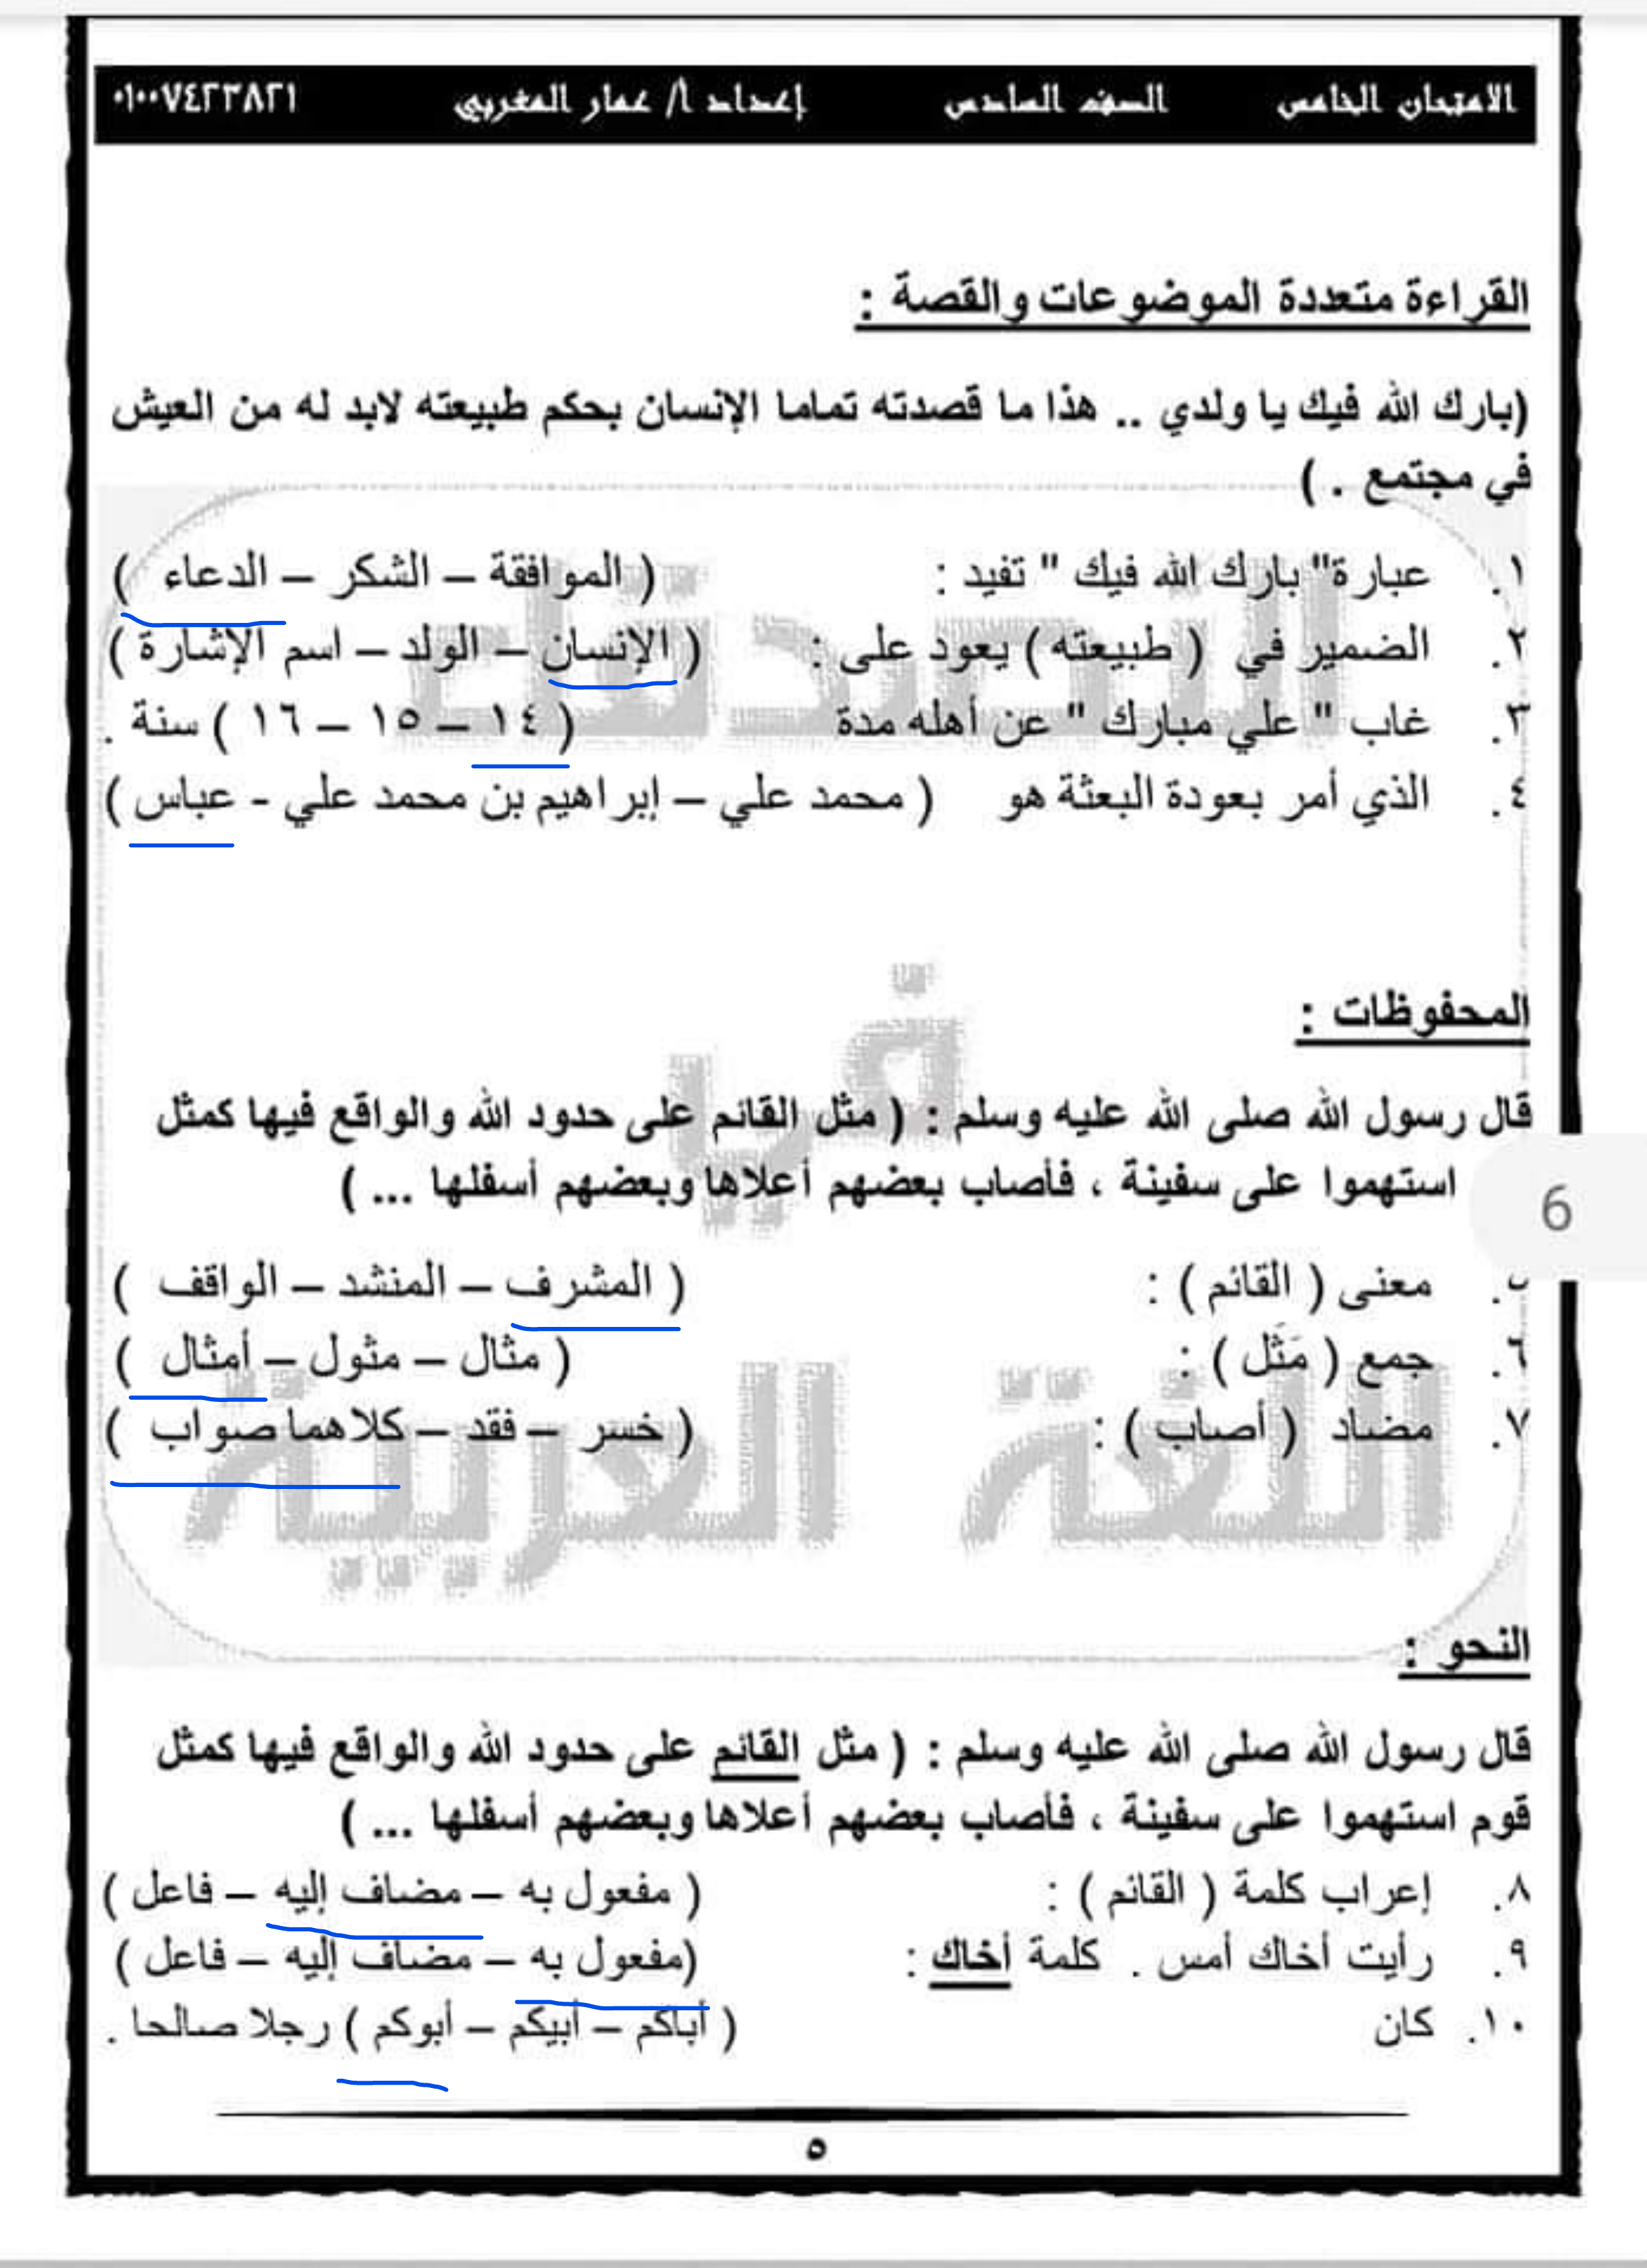 الامتحان الخامس الصف السادس إعداد أ/ عمار المغربي ٠١٠٠٧٤٢٣٨٢١
القراءة متعددة الموضوعات والقصة :
(بارك الله فيك يا ولدي .. هذا ما قصدته تماما الإنسان بحكم طبيعته لابد له من العيش
في مجتمع . )
١. عبارة" بارك الله فيك " تفيد : ( الموافقة – الشكر – الدعاء )
٢. الضمير في ( طبيعته ) يعود على : ( الإنسان – الولد – اسم الإشارة )
٣. غاب " علي مبارك " عن أهله مدة ( ١٤ – ١٥ – ١٦ ) سنة .
٤. الذي أمر بعودة البعثة هو ( محمد علي – إبراهيم بن محمد علي - عباس )
المحفوظات :
قال رسول الله صلى الله عليه وسلم : ( مثل القائم على حدود الله والواقع فيها كمثل
استهموا على سفينة ، فأصاب بعضهم أعلاها وبعضهم أسفلها ... )
6
٥. معنى ( القائم ) : ( المشرف – المنشد – الواقف )
٦. جمع ( مَثَل ) : ( مثال – مثول – أمثال )
٧. مضاد ( أصاب ) : ( خسر – فقد – كلاهما صواب )
النحو :
قال رسول الله صلى الله عليه وسلم : ( مثل القائم على حدود الله والواقع فيها كمثل
قوم استهموا على سفينة ، فأصاب بعضهم أعلاها وبعضهم أسفلها ... )
٨. إعراب كلمة ( القائم ) : ( مفعول به – مضاف إليه – فاعل )
٩. رأيت أخاك أمس . كلمة أخاك : (مفعول به – مضاف إليه – فاعل )
١٠. كان ( أباكم – أبيكم – أبوكم ) رجلا صالحا .
٥
في
اللغة العربية